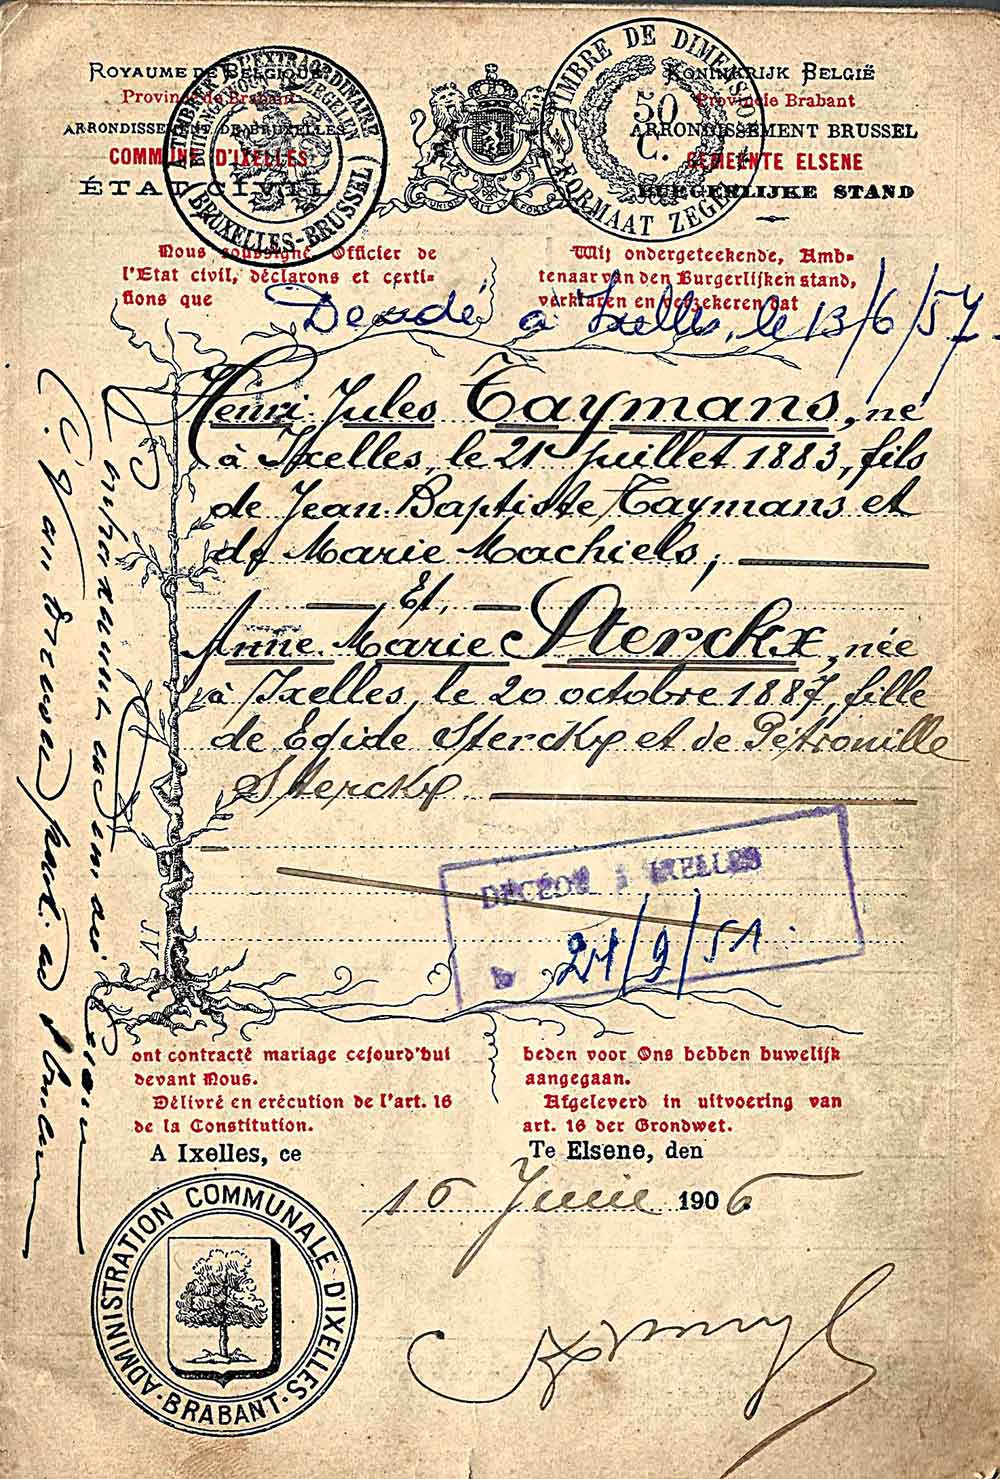 ROYAUME DE BELGIQUE
Province de Brabant
ARRONDISSEMENT DE BRUXELLES
COMMUNE D'IXELLES
ÉTAT CIVIL
KONINKRIJK BELGIË
Provincie Brabant
ARRONDISSEMENT BRUSSEL
GEMEENTE ELSENE
BURGERLIJKE STAND
A TIMBRE A L'EXTRAORDINAIRE
BUITENGEWOON ZEGELEN
BRUXELLES-BRUSSEL
TIMBRE DE DIMENSION
50 C.
FORMAAT ZEGEL
Nous soussigné, Officier de
l'Etat civil, déclarons et certi-
fions que
Wij ondergeteekende, Amb-
tenaar van den Burgerlijken stand,
verklaren en verzekeren dat
à Ixelles, le 13/6/57
Henri Jules Taymans, né
à Ixelles, le 21 juillet 1883, fils
de Jean Baptiste Taymans et
de Marie Machiels,
Et,
Anne Marie Sterckx, née
à Ixelles, le 20 octobre 1887, fille
de Egide Sterckx et de Pétronille
Sterckx
IXELLES
24/9/51
ont contracté mariage cejourd'hui
devant Nous.
Délivré en exécution de l'art. 16
de la Constitution.
A Ixelles, ce
heden voor Ons hebben huwelijk
aangegaan.
Afgeleverd in uitvoering van
art. 16 der Grondwet.
Te Elsene, den
16 Juin 1906
ADMINISTRATION COMMUNALE D'IXELLES
BRABANT